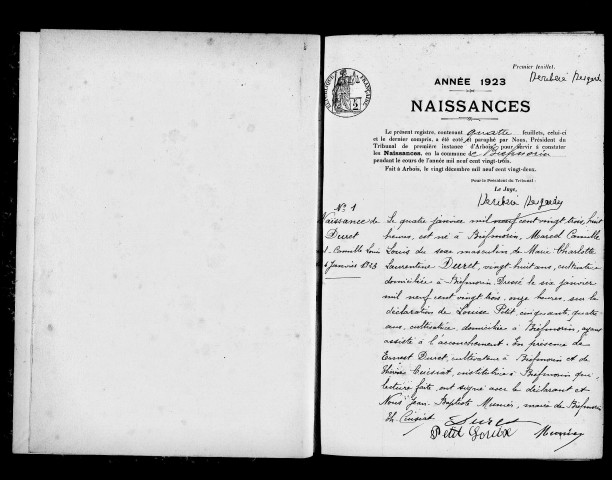 Premier feuillet.
ANNÉE 1923
NAISSANCES
RÉPUBLIQUE FRANÇAISE
2
Le présent registre, contenant quatre feuillets, celui-ci
et le dernier compris, a été coté et paraphé par Nous, Président du
Tribunal de première instance d'Arbois, pour servir à constater
les Naissances, en la commune de Biefmorin
pendant le cours de l'année mil neuf cent vingt-trois.
Fait à Arbois, le vingt décembre mil neuf cent vingt-deux.
Pour le Président du Tribunal :
Le Juge,
No 1
Naissance de
Duret
Camille Louis
4 Janvier 1923
Le quatre janvier mil neuf cent vingt trois, huit
heures, est né à Biefmorin, Marcel Camille
Louis du sexe masculin de Marie Charlotte
Laurentine Duret, vingt huit ans, cultivatrice
domiciliée à Biefmorin. Dressé le six janvier
mil neuf cent vingt trois, onze heures, sur la
déclaration de Louise Petit, cinquante quatre
ans, cultivatrice, domiciliée à Biefmorin, ayant
assisté à l'accouchement. En présence de
Ernest Duret, cultivateur à Biefmorin et de
Cuisiat, institutrice à Biefmorin qui,
lecture faite, ont signé avec la déclarante et
Nous Jean Baptiste Munier, maire de Biefmorin
Th. Cuisiat Duret
Petit Munier